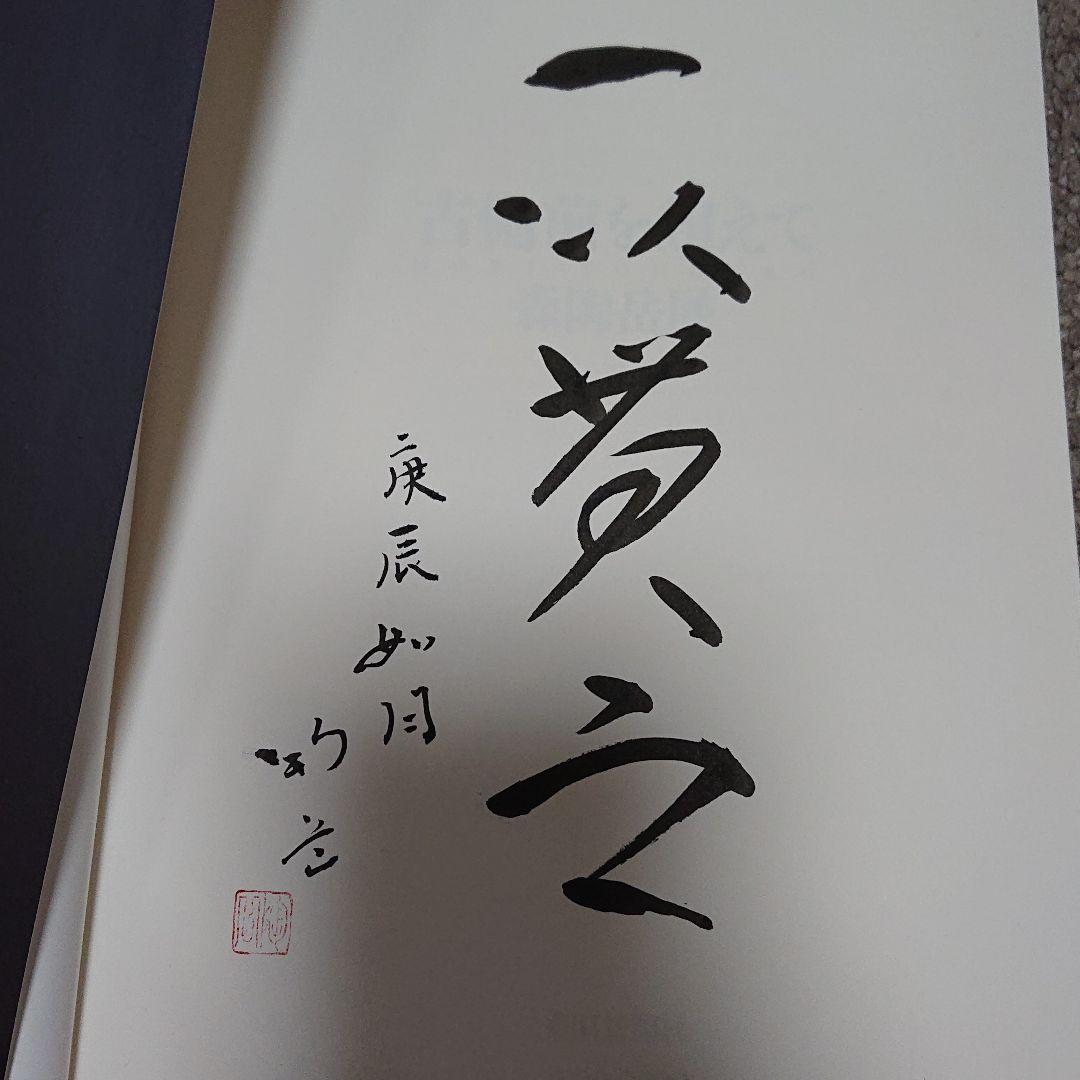 一以貫之
庚辰如月